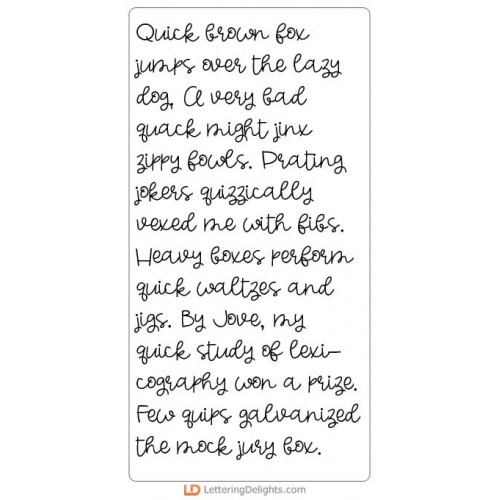 Quick brown fox
jumps over the lazy
dog. A very bad
quack might jinx
zippy fowls. Prating
jokers quizzically
vexed me with fibs.
Heavy boxes perform
quick waltzes and
jigs. By Jove, my
quick study of lexi-
cography won a prize.
Few quips galvanized
the mock jury box.
LD LetteringDelights.com